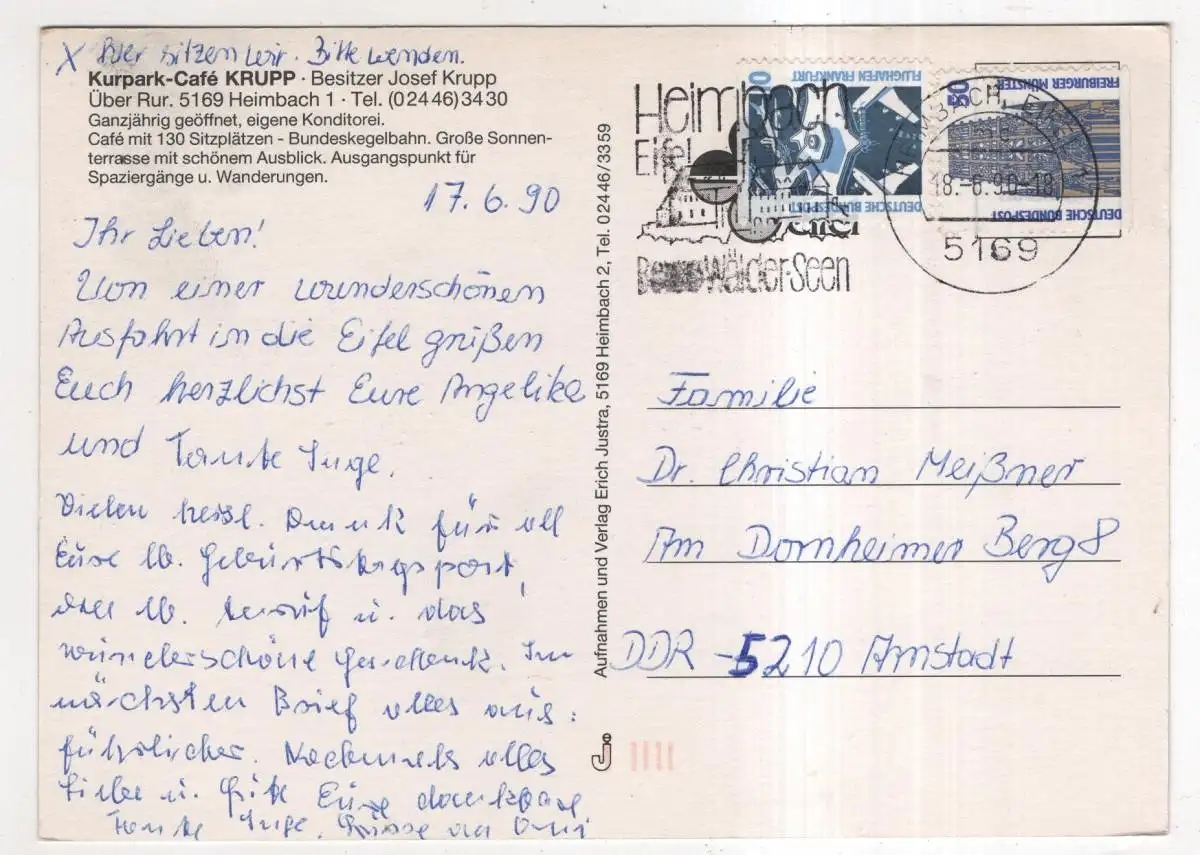 x Hier sitzen wir. Bitte wenden.
Kurpark-Café KRUPP · Besitzer Josef Krupp
Über Rur. 5169 Heimbach 1 · Tel. (0 24 46) 34 30
Ganzjährig geöffnet, eigene Konditorei.
Café mit 130 Sitzplätzen - Bundeskegelbahn. Große Sonnen-
terrasse mit schönem Ausblick. Ausgangspunkt für
Spaziergänge u. Wanderungen.
17.6.90
Ihr Lieben!
Von einer wunderschönen
Ausfahrt in die Eifel grüßen
Euch herzlichst Eure Angelika
und Tante Inge.
Vielen herzl. Dank für all
Eure lb. Geburtstagspost,
den lb. Anruf u. das
wunderschöne Geschenk. Im
nächsten Brief alles aus:
führlicher. Nochmals alles
Liebe u. Gute Eure dankbare
Tante Inge. Grüsse an Omi
Aufnahmen und Verlag Erich Justra, 5169 Heimbach 2, Tel. 02446/3359
Heimbach
Eifel
Eifel
Berge·Wälder·Seen
FLUGHAFEN FRANKFURT
DEUTSCHE BUNDESPOST
FREIBURGER MÜNSTER
DEUTSCHE BUNDESPOST
HEIMBACH, EIFEL 1
18.-6.90-18
5169
Familie
Dr. Christian Meißner
Am Dornheimer Berg 8
DDR - 5210 Arnstadt